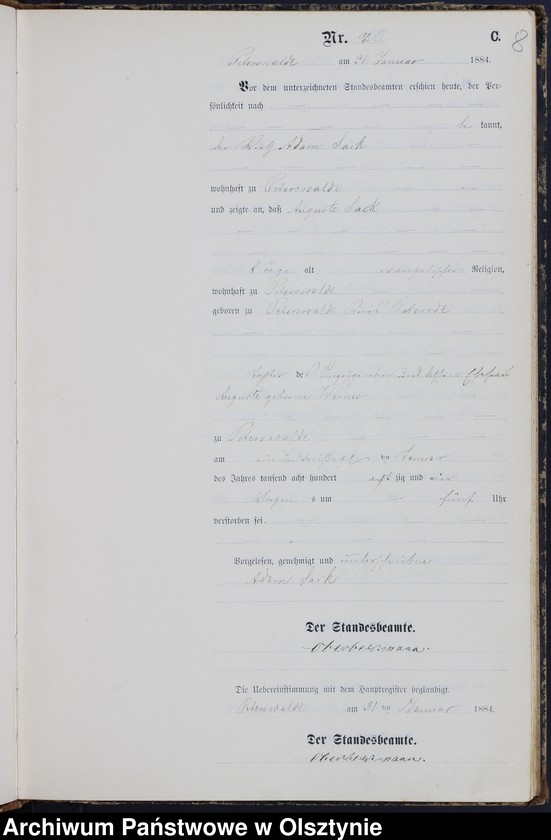 Nr. C. 8
Peterswalde am 31 Januar 1884.
Vor dem unterzeichneten Standesbeamten erschien heute, der Per-
sönlichkeit nach
be kannt,
der Adam Sack
wohnhaft zu Peterswalde
und zeigte an, daß Auguste Sack
8 Tage alt evangelischer Religion,
wohnhaft zu Peterswalde
geboren zu Peterswalde Kreis Osterode
Tochter des Anzeigenden und dessen Ehefrau
Auguste geborne
zu Peterswalde
am einunddreißigsten ten Januar
des Jahres tausend acht hundert acht zig und vier
Morgen s um fünf Uhr
verstorben sei.
Vorgelesen, genehmigt und unterschrieben
Adam Sack
Der Standesbeamte.
Die Uebereinstimmung mit dem Hauptregister beglaubigt.
Peterswalde am 31 ten Januar 1884.
Der Standesbeamte.
Archiwum Państwowe w Olsztynie